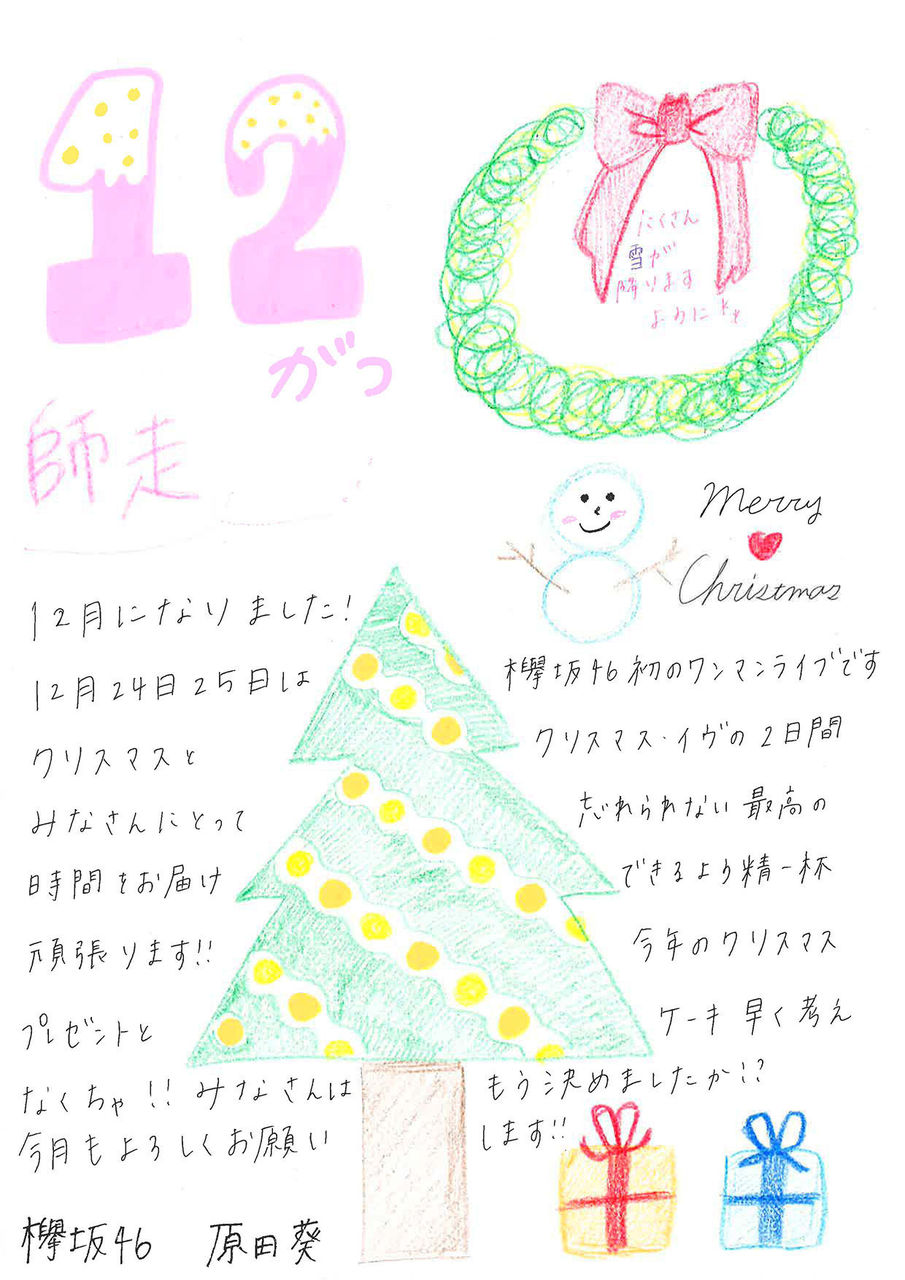 12
がつ
師走
たくさん
雪が
降ります
ように**
Merry
Christmas
12月になりました!
12月24日25日は 欅坂46初のワンマンライブです
クリスマスと クリスマス・イヴの2日間
みなさんにとって 忘れられない最高の
時間をお届け できるよう精一杯
頑張ります!! 今年のクリスマス
プレゼントと ケーキ早く考え
なくちゃ!! みなさんは もう決めましたか!?
今月もよろしくお願い します!!
欅坂46 原田葵